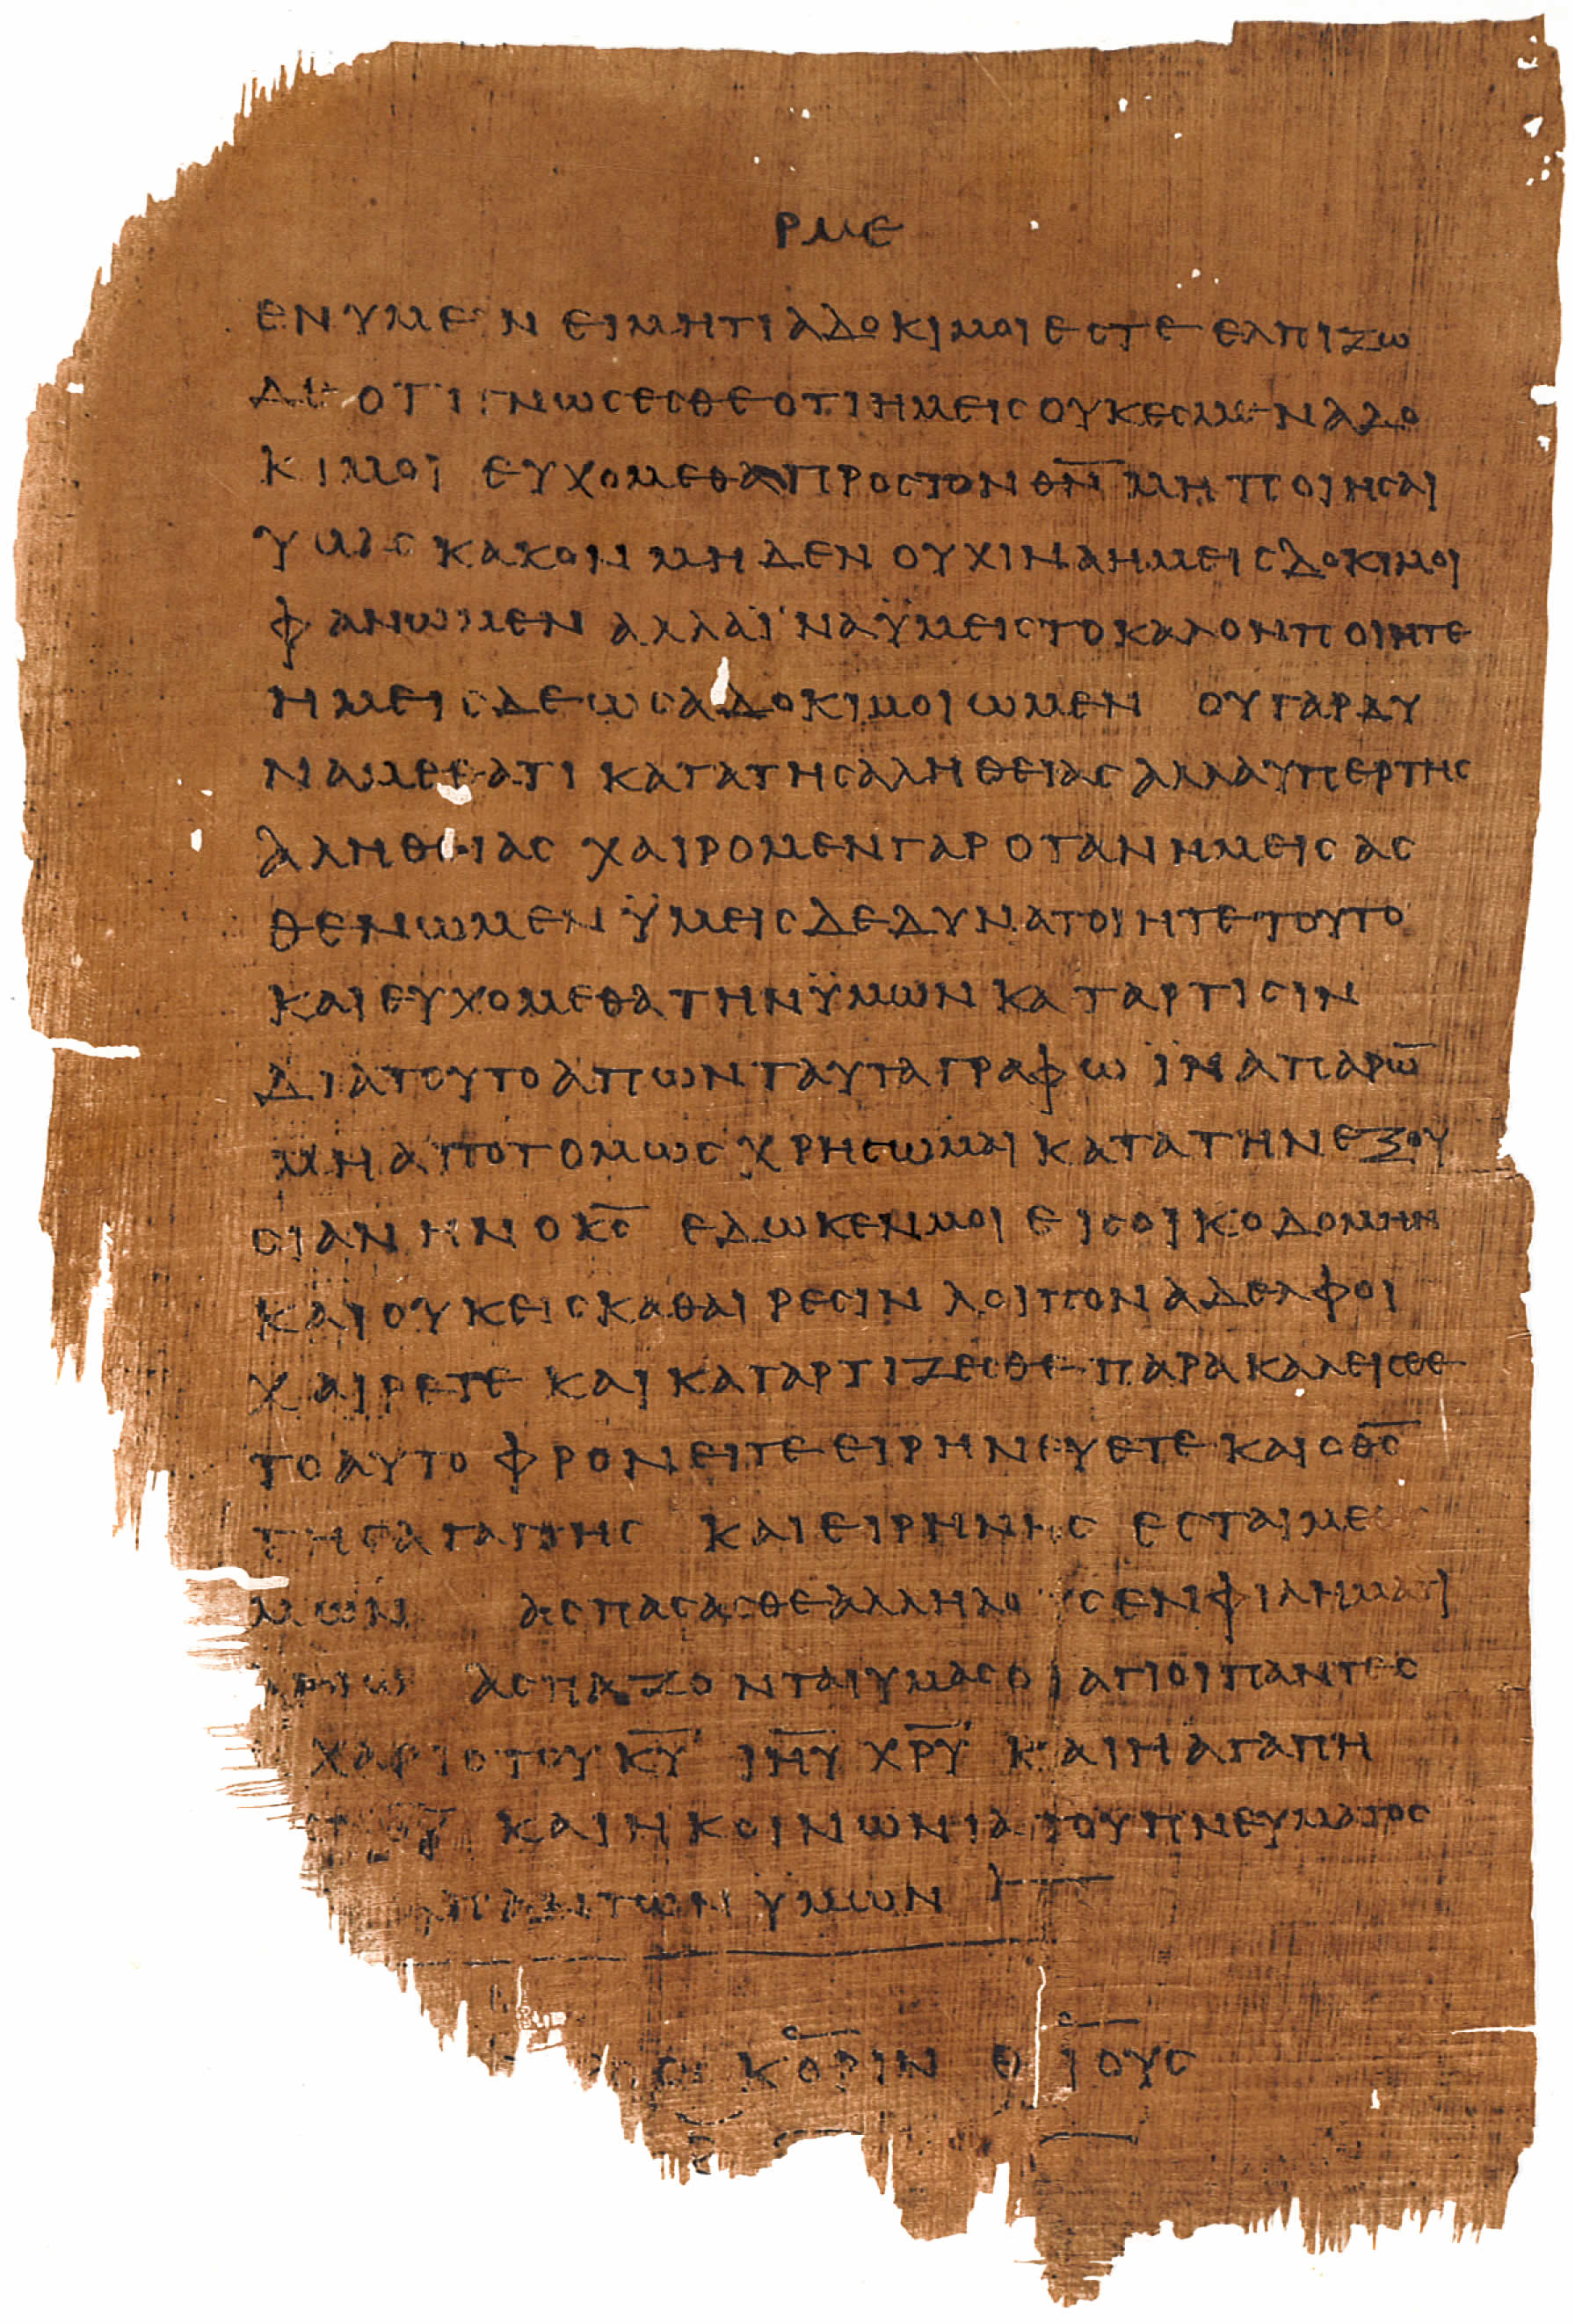 ΡΜΕ
ΕΝ ΥΜΕΙΝ ΕΙ ΜΗΤΙ ΑΔΟΚΙΜΟΙ ΕΣΤΕ ΕΛΠΙΖΩ
ΔΕ ΟΤΙ ΓΝΩΣΕΣΘΕ ΟΤΙ ΗΜΕΙΣ ΟΥΚ ΕΣΜΕΝ ΑΔΟ
ΚΙΜΟΙ ΕΥΧΟΜΕΘΑ ΠΡΟΣ ΤΟΝ Θ̅Ν̅ ΜΗ ΠΟΙΗΣΑΙ
ΥΜΑΣ ΚΑΚΟΝ ΜΗΔΕΝ ΟΥΧ ΙΝΑ ΗΜΕΙΣ ΔΟΚΙΜΟΙ
ΦΑΝΩΜΕΝ ΑΛΛΑ ΪΝΑ ΫΜΕΙΣ ΤΟ ΚΑΛΟΝ ΠΟΙΗΤΕ
ΗΜΕΙΣ ΔΕ ΩΣ ΑΔΟΚΙΜΟΙ ΩΜΕΝ ΟΥ ΓΑΡ ΔΥ
ΝΑΜΕΘΑ ΤΙ ΚΑΤΑ ΤΗΣ ΑΛΗΘΕΙΑΣ ΑΛΛΑ ΥΠΕΡ ΤΗΣ
ΑΛΗΘΕΙΑΣ ΧΑΙΡΟΜΕΝ ΓΑΡ ΟΤΑΝ ΗΜΕΙΣ ΑΣ
ΘΕΝΩΜΕΝ ΫΜΕΙΣ ΔΕ ΔΥΝΑΤΟΙ ΗΤΕ ΤΟΥΤΟ
ΚΑΙ ΕΥΧΟΜΕΘΑ ΤΗΝ ΫΜΩΝ ΚΑΤΑΡΤΙΣΙΝ
ΔΙΑ ΤΟΥΤΟ ΑΠΩΝ ΤΑΥΤΑ ΓΡΑΦΩ ΪΝΑ ΠΑΡΩ̅
ΜΗ ΑΠΟΤΟΜΩΣ ΧΡΗΣΩΜΑΙ ΚΑΤΑ ΤΗΝ ΕΞΟΥ
ΣΙΑΝ ΗΝ Ο Κ̅Σ̅ ΕΔΩΚΕΝ ΜΟΙ ΕΙΣ ΟΙΚΟΔΟΜΗΝ
ΚΑΙ ΟΥΚ ΕΙΣ ΚΑΘΑΙΡΕΣΙΝ ΛΟΙΠΟΝ ΑΔΕΛΦΟΙ
ΧΑΙΡΕΤΕ ΚΑΙ ΚΑΤΑΡΤΙΖΕΣΘΕ ΠΑΡΑΚΑΛΕΙΣΘΕ
ΤΟ ΑΥΤΟ ΦΡΟΝΕΙΤΕ ΕΙΡΗΝΕΥΕΤΕ ΚΑΙ Ο Θ̅Σ̅
ΤΗΣ ΑΓΑΠΗΣ ΚΑΙ ΕΙΡΗΝΗΣ ΕΣΤΑΙ ΜΕ
ΜΩΝ ΑΣΠΑΣΑΣΘΕ ΑΛΛΗΛΟΥΣ ΕΝ ΦΙΛΗΜΑΤΙ
ΑΣΠΑΖΟΝΤΑΙ ΥΜΑΣ ΟΙ ΑΓΙΟΙ ΠΑΝΤΕΣ
ΧΑΡΙΣ ΤΟΥ Κ̅Υ̅ Ι̅Η̅Υ̅ Χ̅Ρ̅Υ̅ ΚΑΙ Η ΑΓΑΠΗ
ΚΑΙ Η ΚΟΙΝΩΝΙΑ ΤΟΥ ΠΝΕΥΜΑΤΟΣ
ΠΑΝΤΩΝ ΥΜΩΝ
ΚΟΡΙΝΘΙΟΥΣ